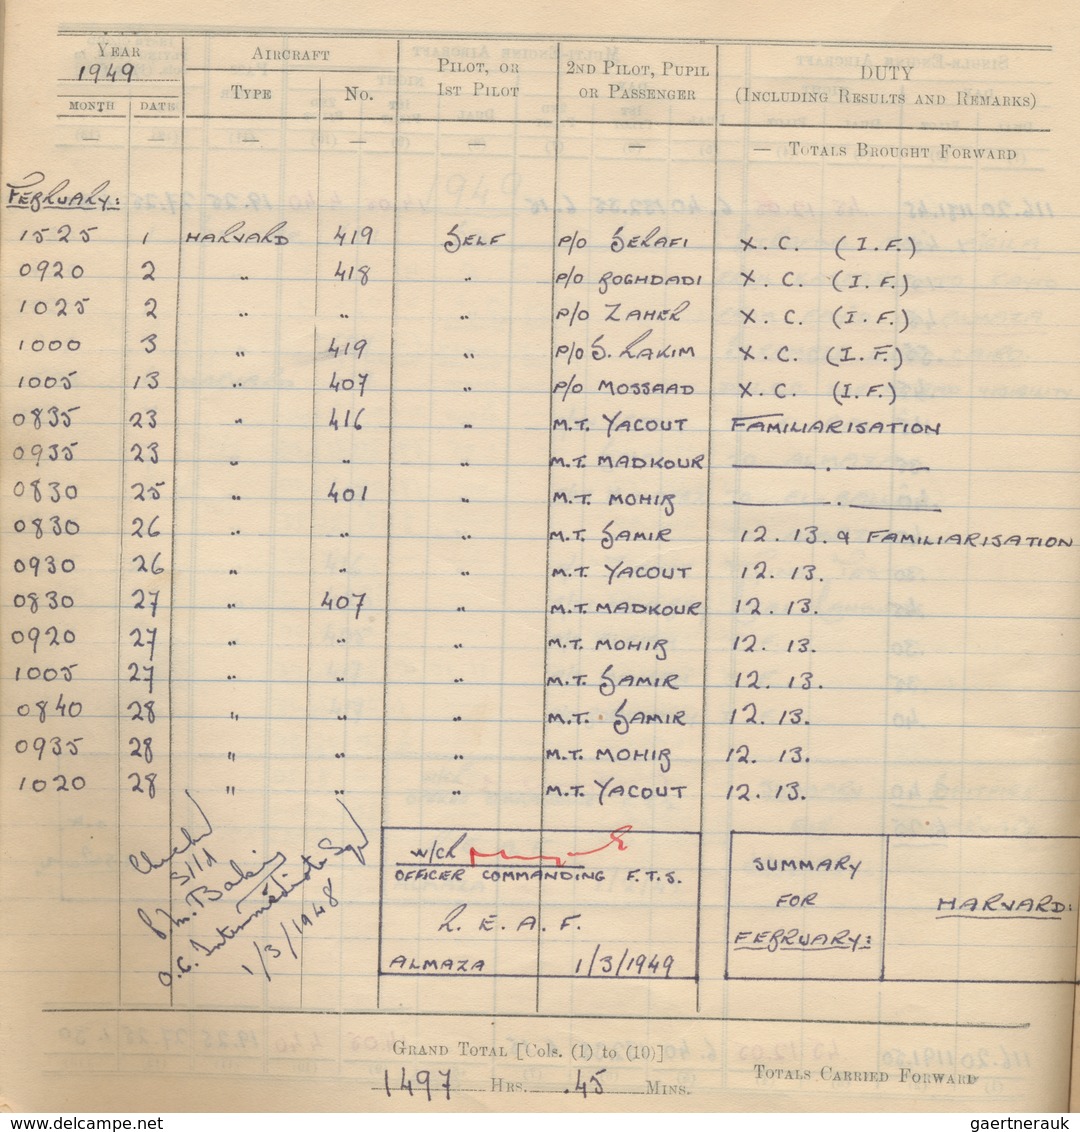 YEAR AIRCRAFT PILOT, OR 1ST PILOT 2ND PILOT, PUPIL OR PASSENGER DUTY (INCLUDING RESULTS AND REMARKS)
1949
MONTH DATE TYPE No.
— — — — — — — TOTALS BROUGHT FORWARD
FEBRUARY:
1525 1 HARVARD 419 SELF P/O SERAFI X.C. (I.F.)
0920 2 " 418 " P/O BOGHDADI X.C. (I.F.)
1025 2 " " " P/O ZAHER X.C. (I.F.)
1000 3 " 419 " P/O S. HAKIM X.C. (I.F.)
1005 13 " 407 " P/O MOSSAAD X.C. (I.F.)
0835 23 " 416 " M.T. YACOUT FAMILIARISATION
0935 23 " " " M.T. MADKOUR — . —
0830 25 " 401 " M.T. MOHIB — . —
0830 26 " " " M.T. SAMIR 12. 13. & FAMILIARISATION
0930 26 " " " M.T. YACOUT 12. 13.
0830 27 " 407 " M.T. MADKOUR 12. 13.
0920 27 " " " M.T. MOHIB 12. 13.
1005 27 " " " M.T. SAMIR 12. 13.
0840 28 " " " M.T. SAMIR 12. 13.
0935 28 " " " M.T. MOHIB 12. 13.
1020 28 " " " M.T. YACOUT 12. 13.
O.C. Intermediate Sqd
1/3/1948
W/CR
OFFICER COMMANDING F.T.S.
R. E. A. F.
ALMAZA 1/3/1949
SUMMARY
FOR
FEBRUARY:
HARVARD:
GRAND TOTAL [Cols. (1) to (10)]
1497 HRS. .45 MINS.
TOTALS CARRIED FORWARD
www.delcampe.net
gaertnerauk